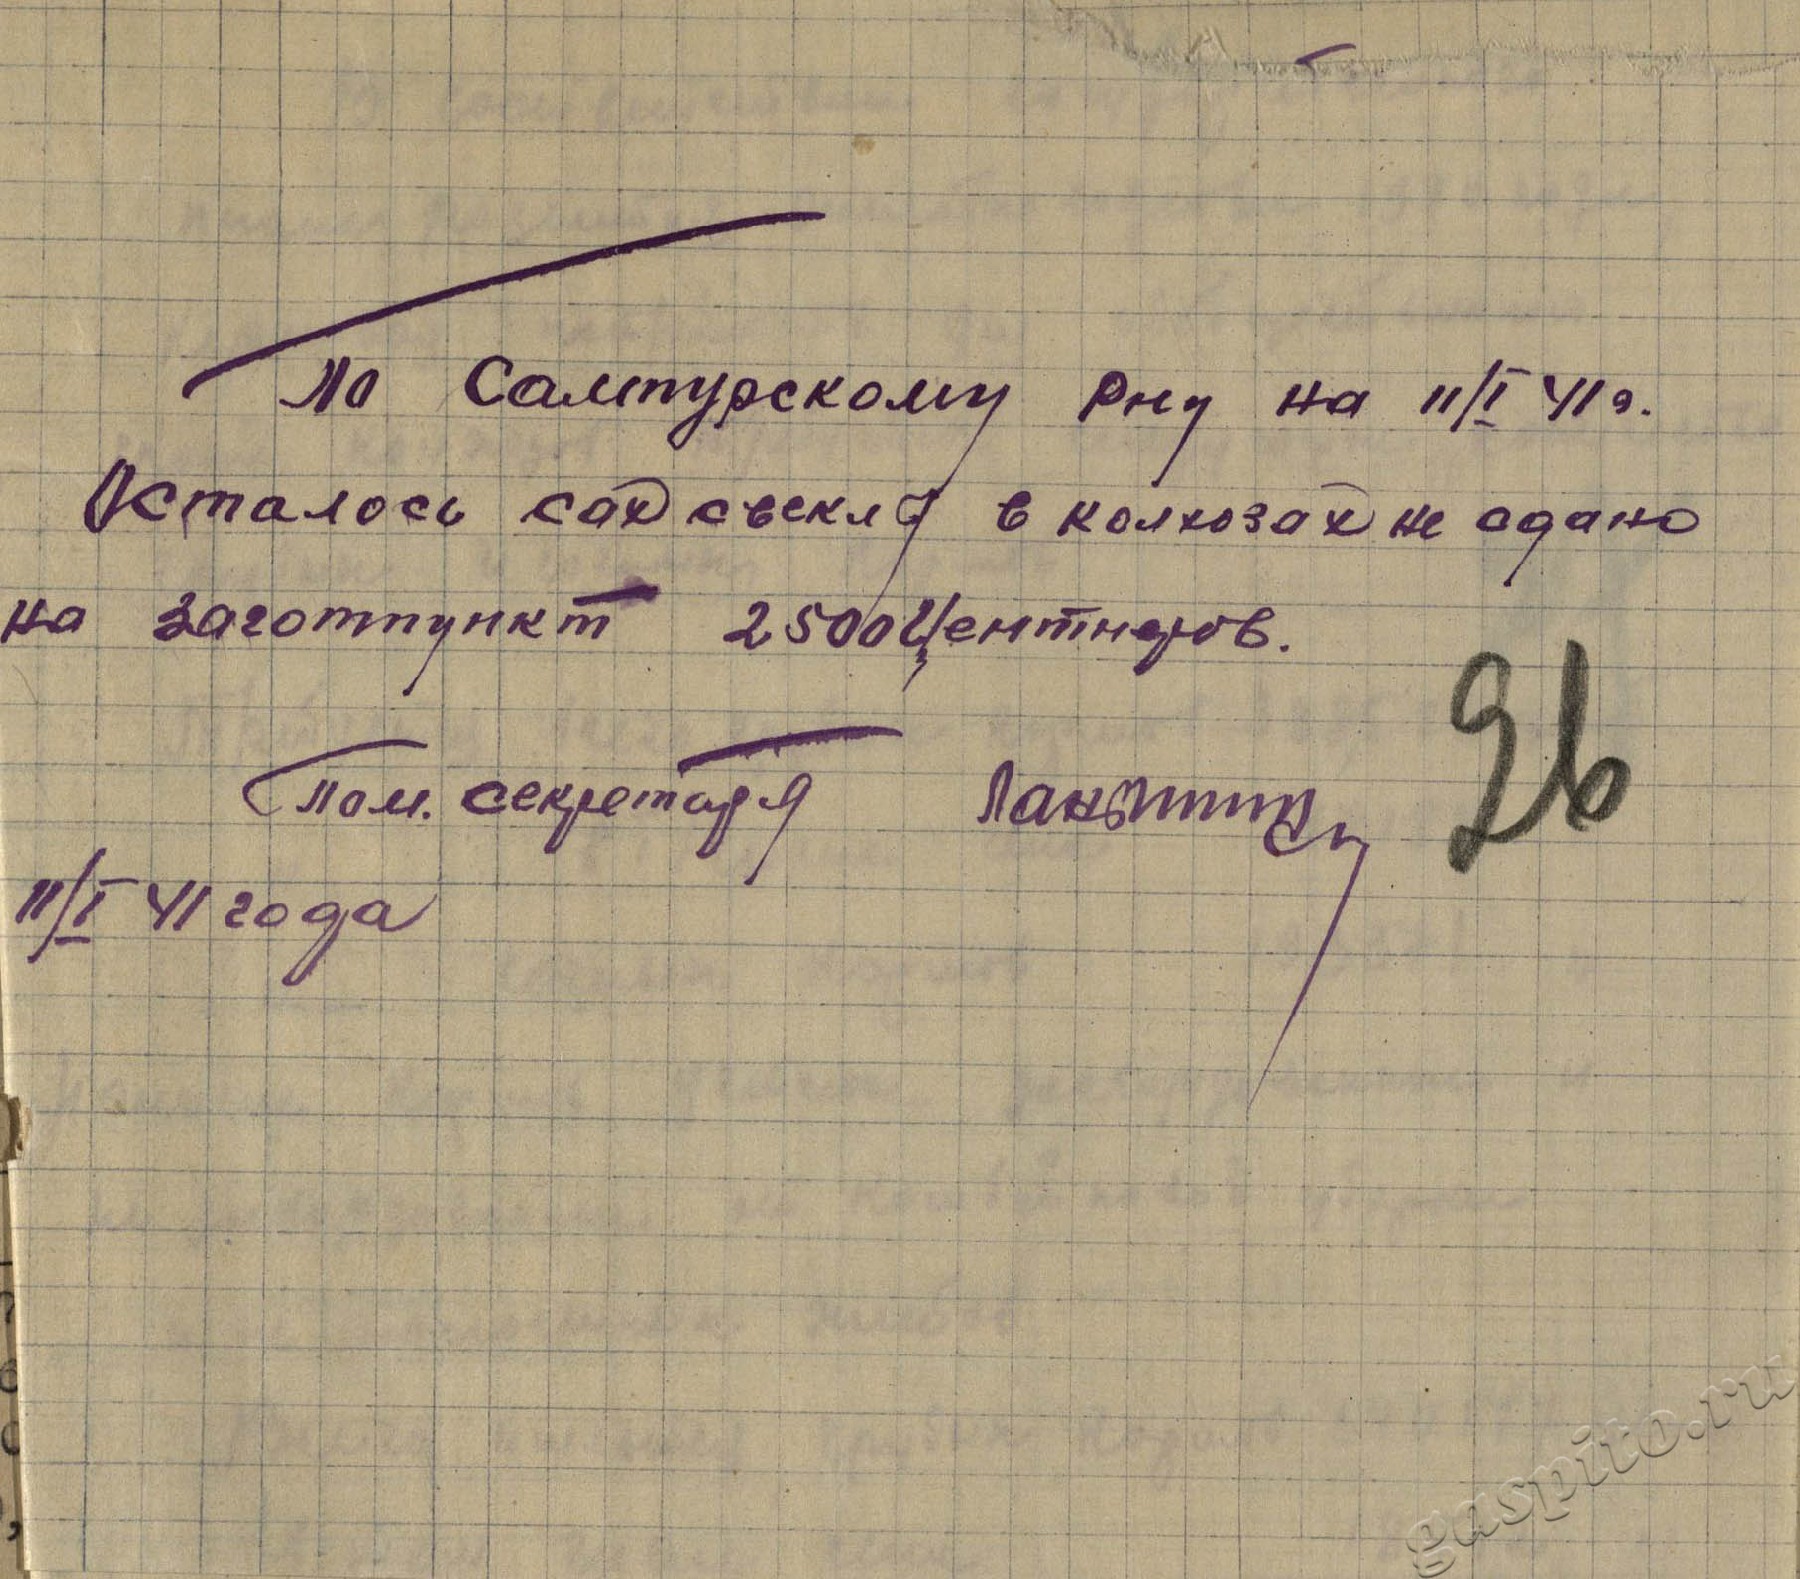 По Сампурскому рну на 11/I 41 г.
Осталось сах свеклы в колхозах не сдано
на заготпункт 2500 Центнеров.
26
Пом. секретаря
11/I 41 года
gaspito.ru